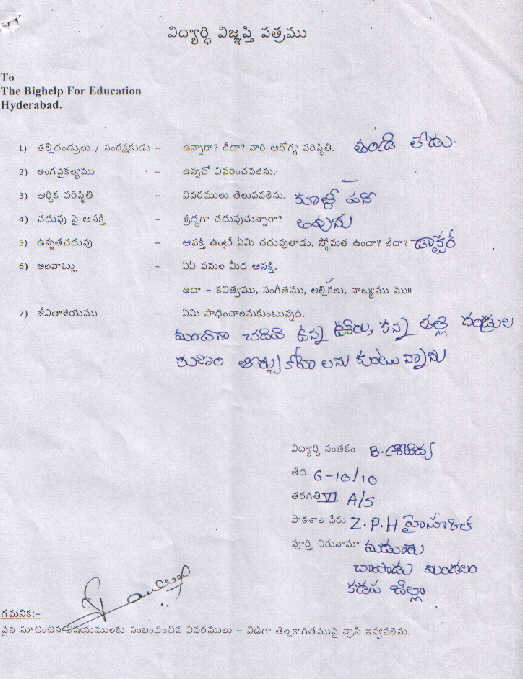 విద్యార్థి విజ్ఞప్తి పత్రము
To
The Bighelp For Education
Hyderabad.
1) తల్లిదండ్రులు / సంరక్షకుడు – ఉన్నారా? లేదా? వారి ఆరోగ్య పరిస్థితి. తండ్రి లేడు.
2) అంగవైకల్యము – ఉన్నచో వివరించవలెను.
3) ఆర్థిక పరిస్థితి – వివరములు తెలుపవలెను. కూలీ పని
4) చదువు పై ఆసక్తి – శ్రద్ధగా చదువుచున్నారా? అవును
5) ఉన్నతచదువు – ఆసక్తి ఉంటే ఏమి చదువుతాడు. స్తోమత ఉందా? లేదా? డాక్టర్
6) అలవాట్లు – ఏఏ పనుల మీద ఆసక్తి.
ఉదా – కవిత్వము, సంగీతము, అల్లికలు, నాట్యము మొ॥
7) జీవితాశయము ఏమి సాధించాలనుకుంటున్నది.
చదివి కన్న తల్లి దండ్రుల
అనుకుంటున్నాను
విద్యార్థి సంతకం B.
తేది 6-10/10
తరగతి VI A/S
పాఠశాల పేరు Z.P.H
పూర్తి చిరునామా
మండలం
కడప జిల్లా
గమనిక:-
పైన సూచించిన అంశములకు సంబంధించిన వివరములు – విడిగా తెల్లకాగితముపై వ్రాసి ఇవ్వవలెను.